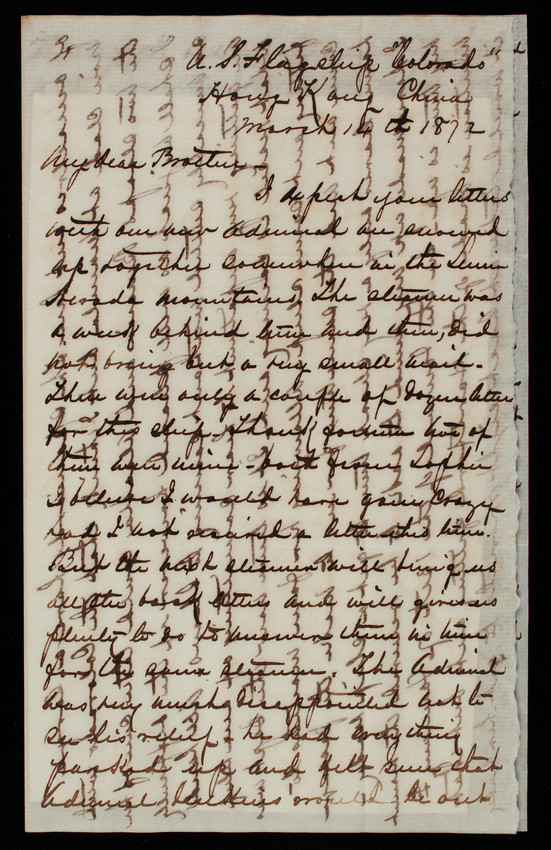 U.S. Flagship "Colorado"
Hong Kong China
March 14th 1872
My dear Brother -
I expect your letters
with our new Admiral are snowed
up together somewhere in the
Nevada mountains. The steamer was
a week behind time and then, did
not bring but a very small mail -
There were only a couple of dozen letters
for this ship - Thank fortune two of
them were mine - both from Sophie
I believe I would have gone crazy
had I not received a letter this time.
But the next steamer will bring us
all the back letters and will give us
plenty to do to answer them in time
for the same steamer. The Admiral
was very much disappointed not to
see his relief - he had everything
packed up and felt sure that
Admiral Jenkins would be out